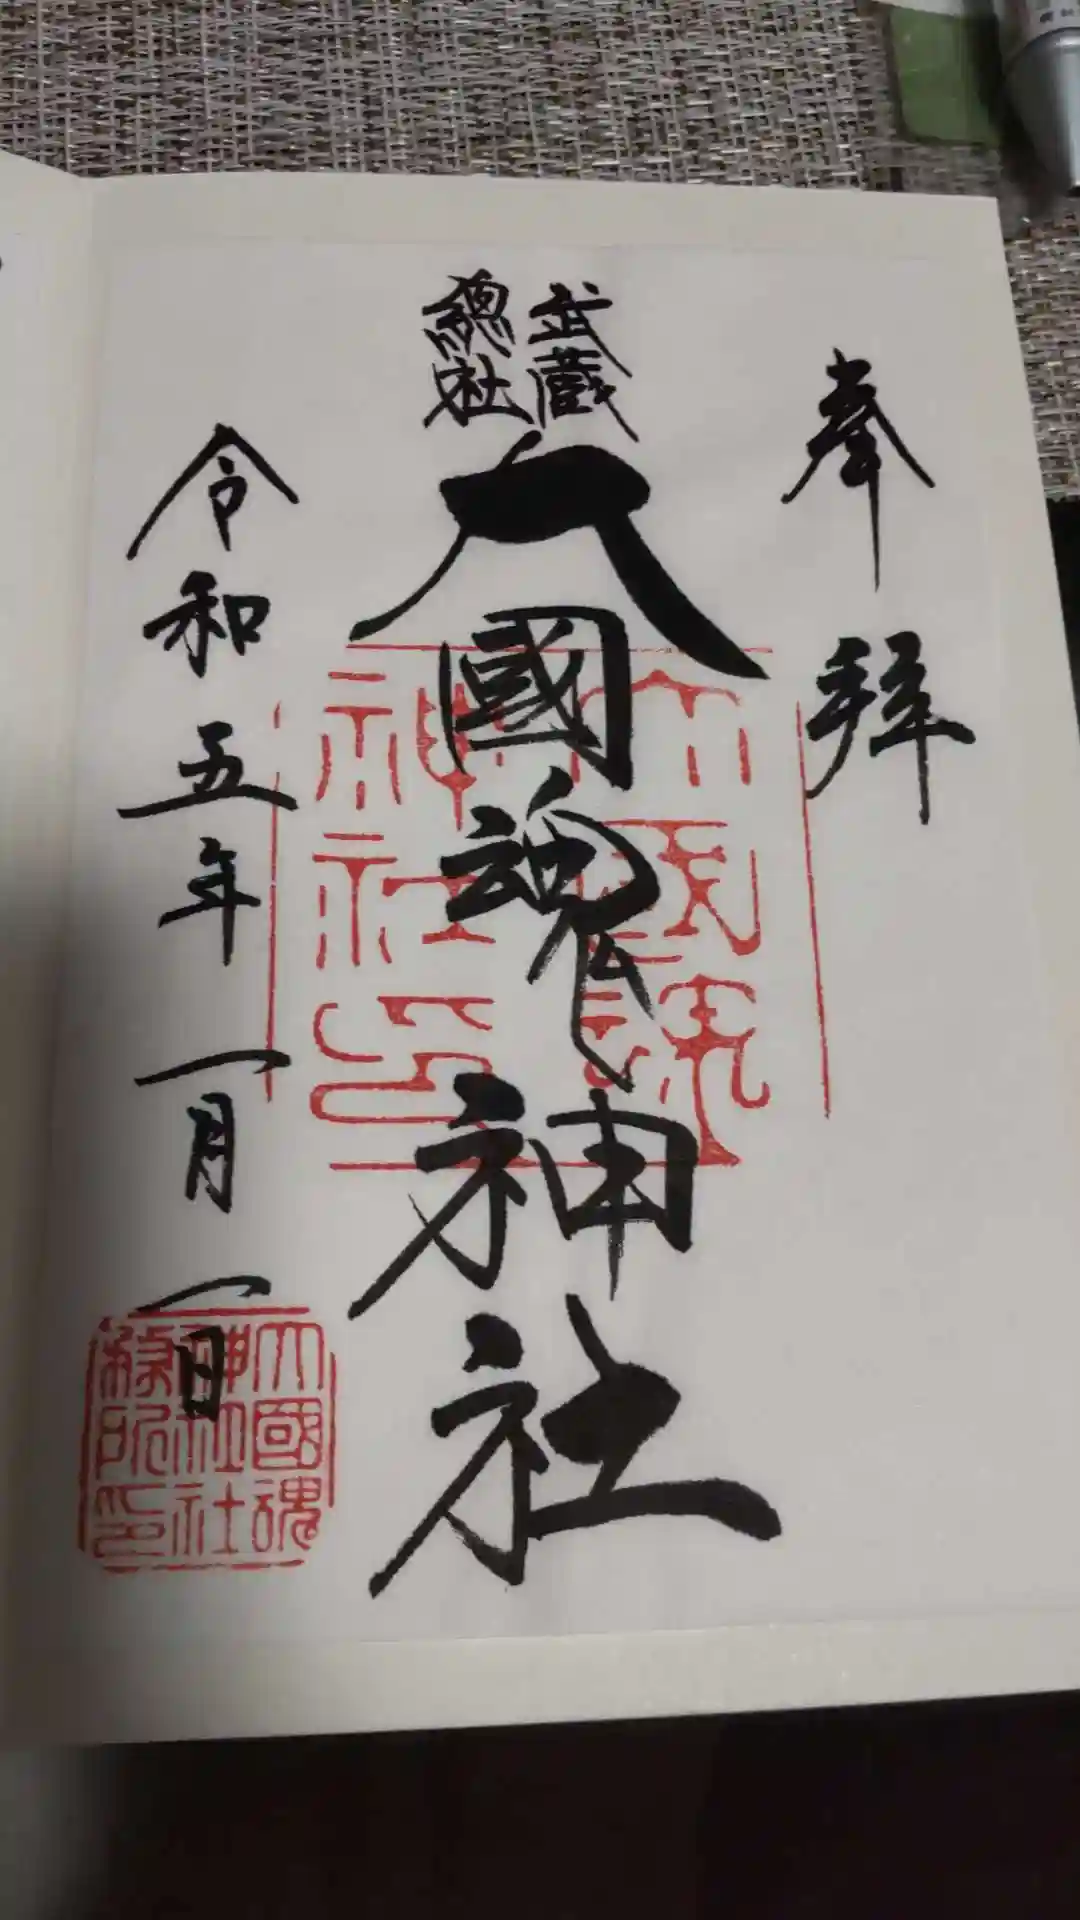 奉拝
武蔵
總社
大國魂神社
令和五年一月一日
大國魂
神社印
大國魂
神社社
務所印